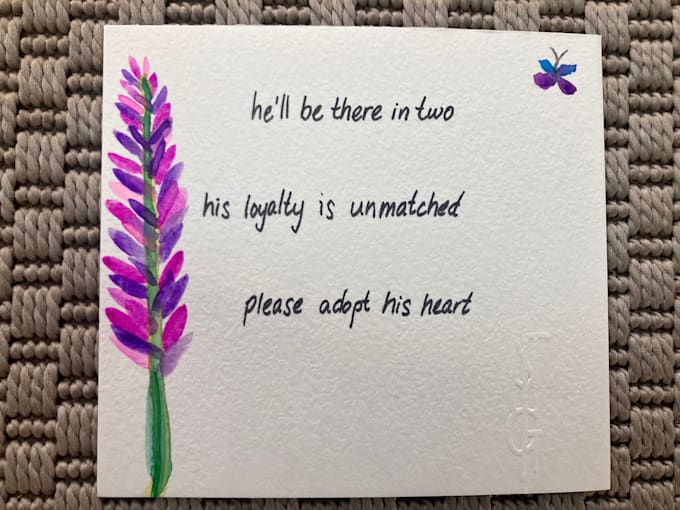 he'll be there in two
his loyalty is unmatched
please adopt his heart